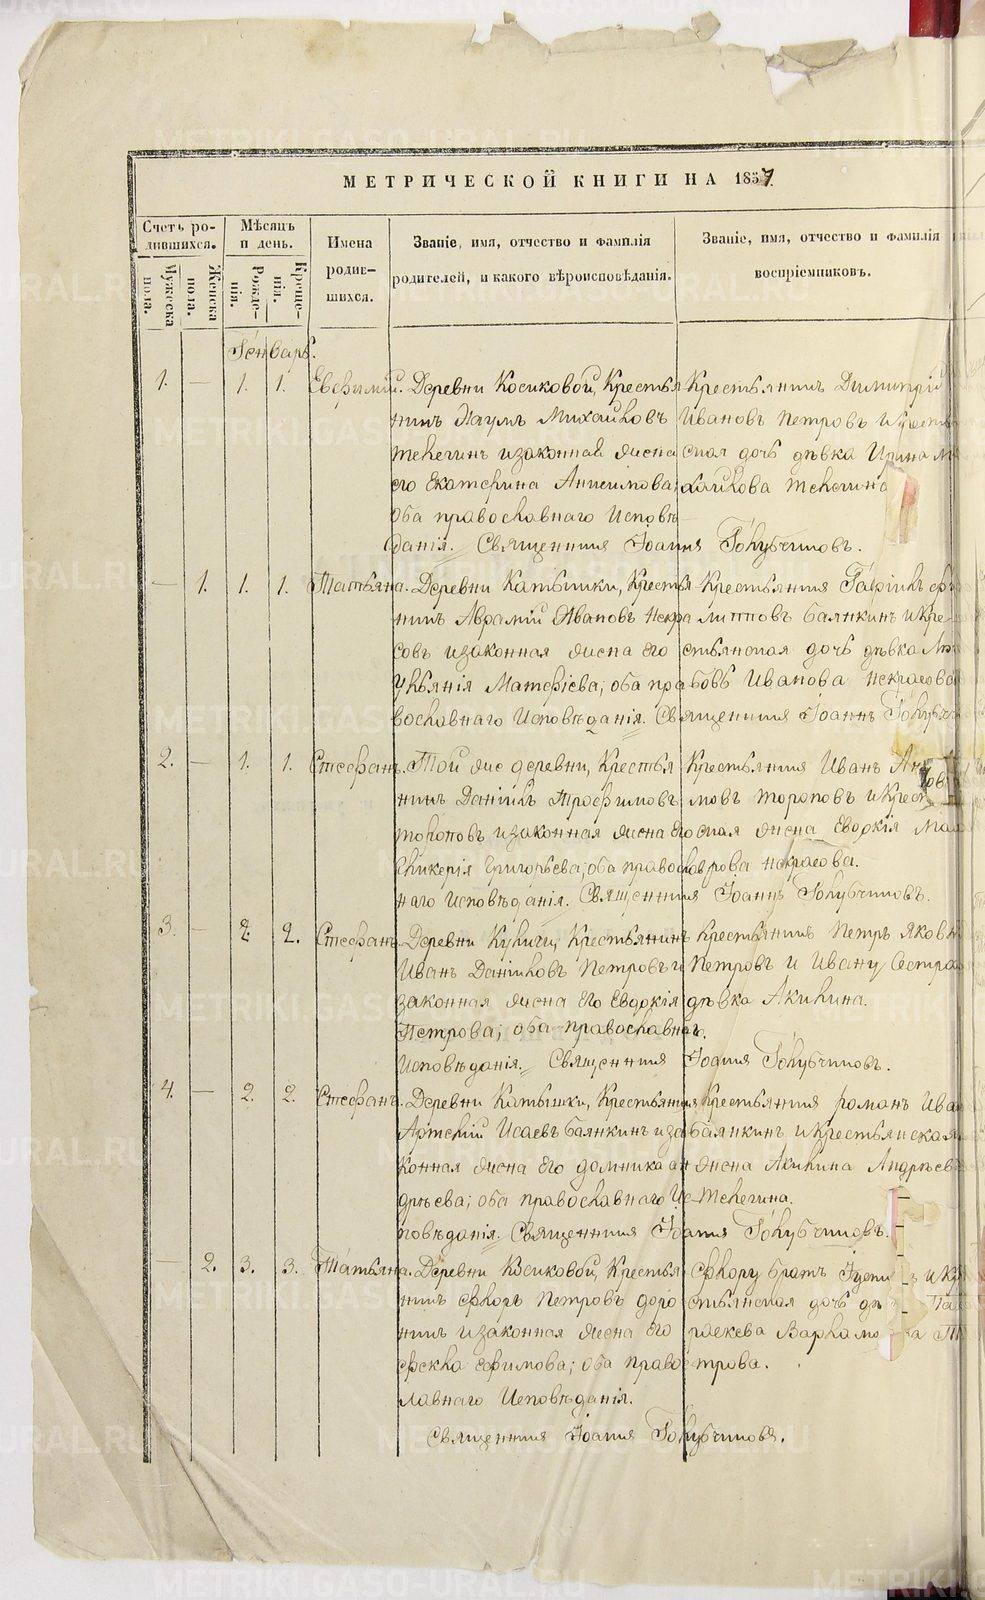 МЕТРИЧЕСКОЙ КНИГИ НА 1857.
Счетъ ро-
дившихся.
Мужеска
пола.
Женска
пола.
Мѣсяцъ
и день.
Рожде-
нія.
Креще-
нія.
Имена
родив-
шихся.
Званіе, имя, отчество и фамилія
родителей, и какого вѣроисповѣданія.
Званіе, имя, отчество и фамилія
воспріемниковъ.
Генварь.
1. — 1. 1. Евфимій. Деревни Косиковой, Крестья
нинъ Наумъ Михайловъ
Телегинъ и законная жена
его Екатерина Анисимова;
оба православнаго Исповѣ
данія. Священникъ Іоаннъ Голубчиковъ.
Крестьянинъ Димитрій
Ивановъ Петровъ и Кресть
ская дочь дѣвка Ирина Ми
хайлова Телегина
— 1. 1. 1. Татьяна. Деревни Катышки, Крестья
нинъ Аврамій Ивановъ Некра
совъ и законная жена его
Матфіева; оба пра
вославнаго Исповѣданія. Священникъ Іоаннъ Голубч
Крестьянинъ Гавріилъ Фи
липповъ Балякинъ и Кре
стьянская дочь дѣвка Лю
бовь Иванова Некрасова
2. — 1. 1. Стефанъ. Той же деревни, Крестья
нинъ Даніилъ Трофимовъ
Тороповъ и законная жена Его
Гликерія Григорьева; оба православ
наго Исповѣданія. Священникъ Іоаннъ Голубчиковъ.
Крестьянинъ Иванъ
мовъ Тороповъ и Крест
ская жена Евдокія Ма
рова Некрасова.
3. — 2. 2. Стефанъ. Деревни Кулиги, Крестьянинъ
Иванъ Даніиловъ Петровъ и
законная жена Его Евдокія
Петрова; оба православнаго
Исповѣданія. Священникъ Іоаннъ Голубчиковъ.
Крестьянинъ Петръ Яковл
Петровъ и Ивану Сестра
дѣвка Акилина.
4. — 2. 2. Стефанъ. Деревни Катышки, Крестьянинъ
Исаевъ Балякинъ и за
конная жена Его Домника Ан
дреева; оба православнаго Ис
повѣданія. Священникъ Іоаннъ Голубчиковъ.
Крестьянинъ Романъ Ива
Балякинъ и Крестьянская
жена Акилина Андреев
Телегина.
— 2. 3. 3. Татьяна. Деревни Косиковой, Крестья
нинъ Флоръ Петровъ Доро
нинъ и законная жена Его
Фекла Ефимова; оба правос
лавнаго Исповѣданія.
Священникъ Іоаннъ Голубчиковъ.
Флору братъ и Кр
стьянская дочь
Варламо
трова.